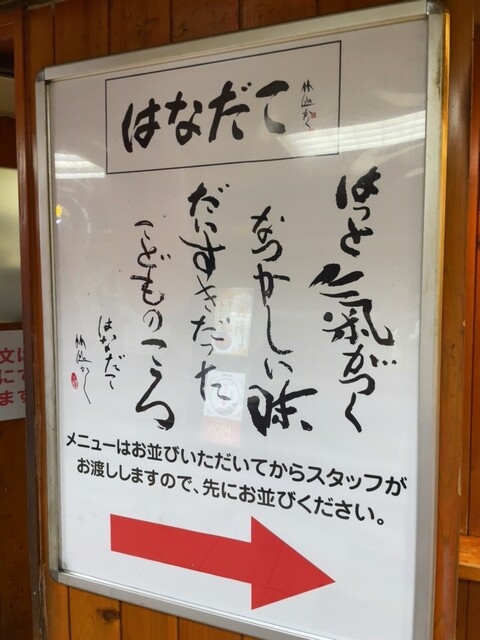 はなだこ
はっと氣がつく
なつかしい味
だいすきだった
こどものころ
はなだこ
メニューはお並びいただいてからスタッフが
お渡ししますので、先にお並びください。
文は
にて
ます